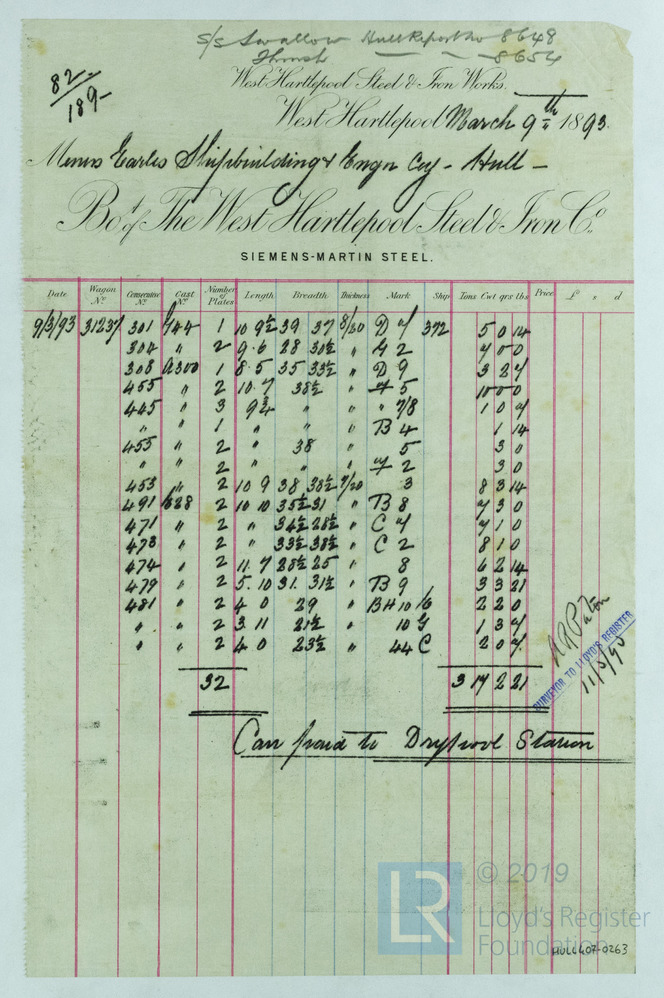 S/S Swallow Hull Report No 8648
Thrush — " — 8654
82/189-
West Hartlepool Steel & Iron Works.
West Hartlepool March 9th 1893.
Messrs Earles Shipbuilding & Engn Coy - Hull -
Bot of The West Hartlepool Steel & Iron Co.
SIEMENS-MARTIN STEEL.
Date Wagon No. Consecutive No. Cast No. Number of Plates Length Breadth Thickness Mark Ship Tons Cwt qrs lbs Price £ s d
9/3/93 31237 301 744 1 10 9½ 39 37 8/20 D 7 372 5 0 14
304 " 2 9.6 28 30½ " G 2 7 0 0
308 A300 1 8.5 35 33½ " D 9 3 2 7
455 " 2 10.7 38½ " 5 10 0 0
445 " 3 9¾ " " " 7/8 1 0 7
" " 1 " " " B 4 1 14
455 " 2 " 38 " 5 3 0
" " 2 " " " 2 3 0
453 " 2 10 9 38 38½ 7/20 3 8 3 14
491 628 2 10 10 35½ 31 " B 8 7 3 0
471 " 2 " 34½ 28½ " C 7 7 1 0
473 " 2 " 33½ 38½ " C 2 8 1 0
474 " 2 11.7 28½ 25 " 8 6 2 14
479 " 2 5.10 31. 31½ " B 9 3 3 21
481 " 2 4 0 29 " BH 10 /6 2 2 0
" " 2 3 11 21½ " 10 G 1 3 7
" " 2 4 0 23½ " 44 C 2 0 7
32 3 17 2 21
SURVEYOR TO LLOYD'S REGISTER
11/3/93
Carr paid to Drypool Station
LR © 2019
Lloyd's Register
Foundation
HULL407-0263